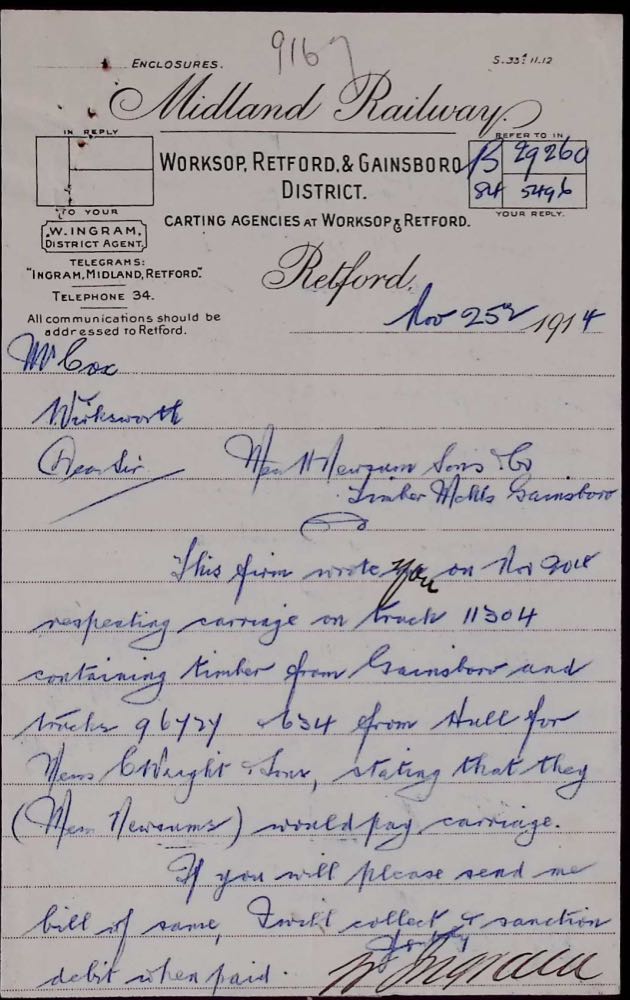 9167
ENCLOSURES.
S.33? 11.12
Midland Railway.
IN REPLY
TO YOUR
REFER TO IN
B 29260
84 5496
YOUR REPLY.
WORKSOP, RETFORD, & GAINSBORO
DISTRICT.
CARTING AGENCIES AT WORKSOP & RETFORD.
W. INGRAM,
DISTRICT AGENT.
TELEGRAMS:
"INGRAM, MIDLAND, RETFORD."
TELEPHONE 34.
All communications should be
addressed to Retford.
Retford,
Nov 25 1914
Mr Cox
Wirksworth
Dear Sir
Mess H Newsum Sons & Co
Timber Mchts Gainsboro
This firm wrote you on Nov
respecting carriage on truck 11304
containing timber from Gainsboro and
trucks 96727 & 634 from Hull for
Mess C Wright & Sons, stating that they
(Mess Newsums) would pay carriage.
If you will please send me
bill of same, I will collect & sanction
debit when paid.
W Ingram